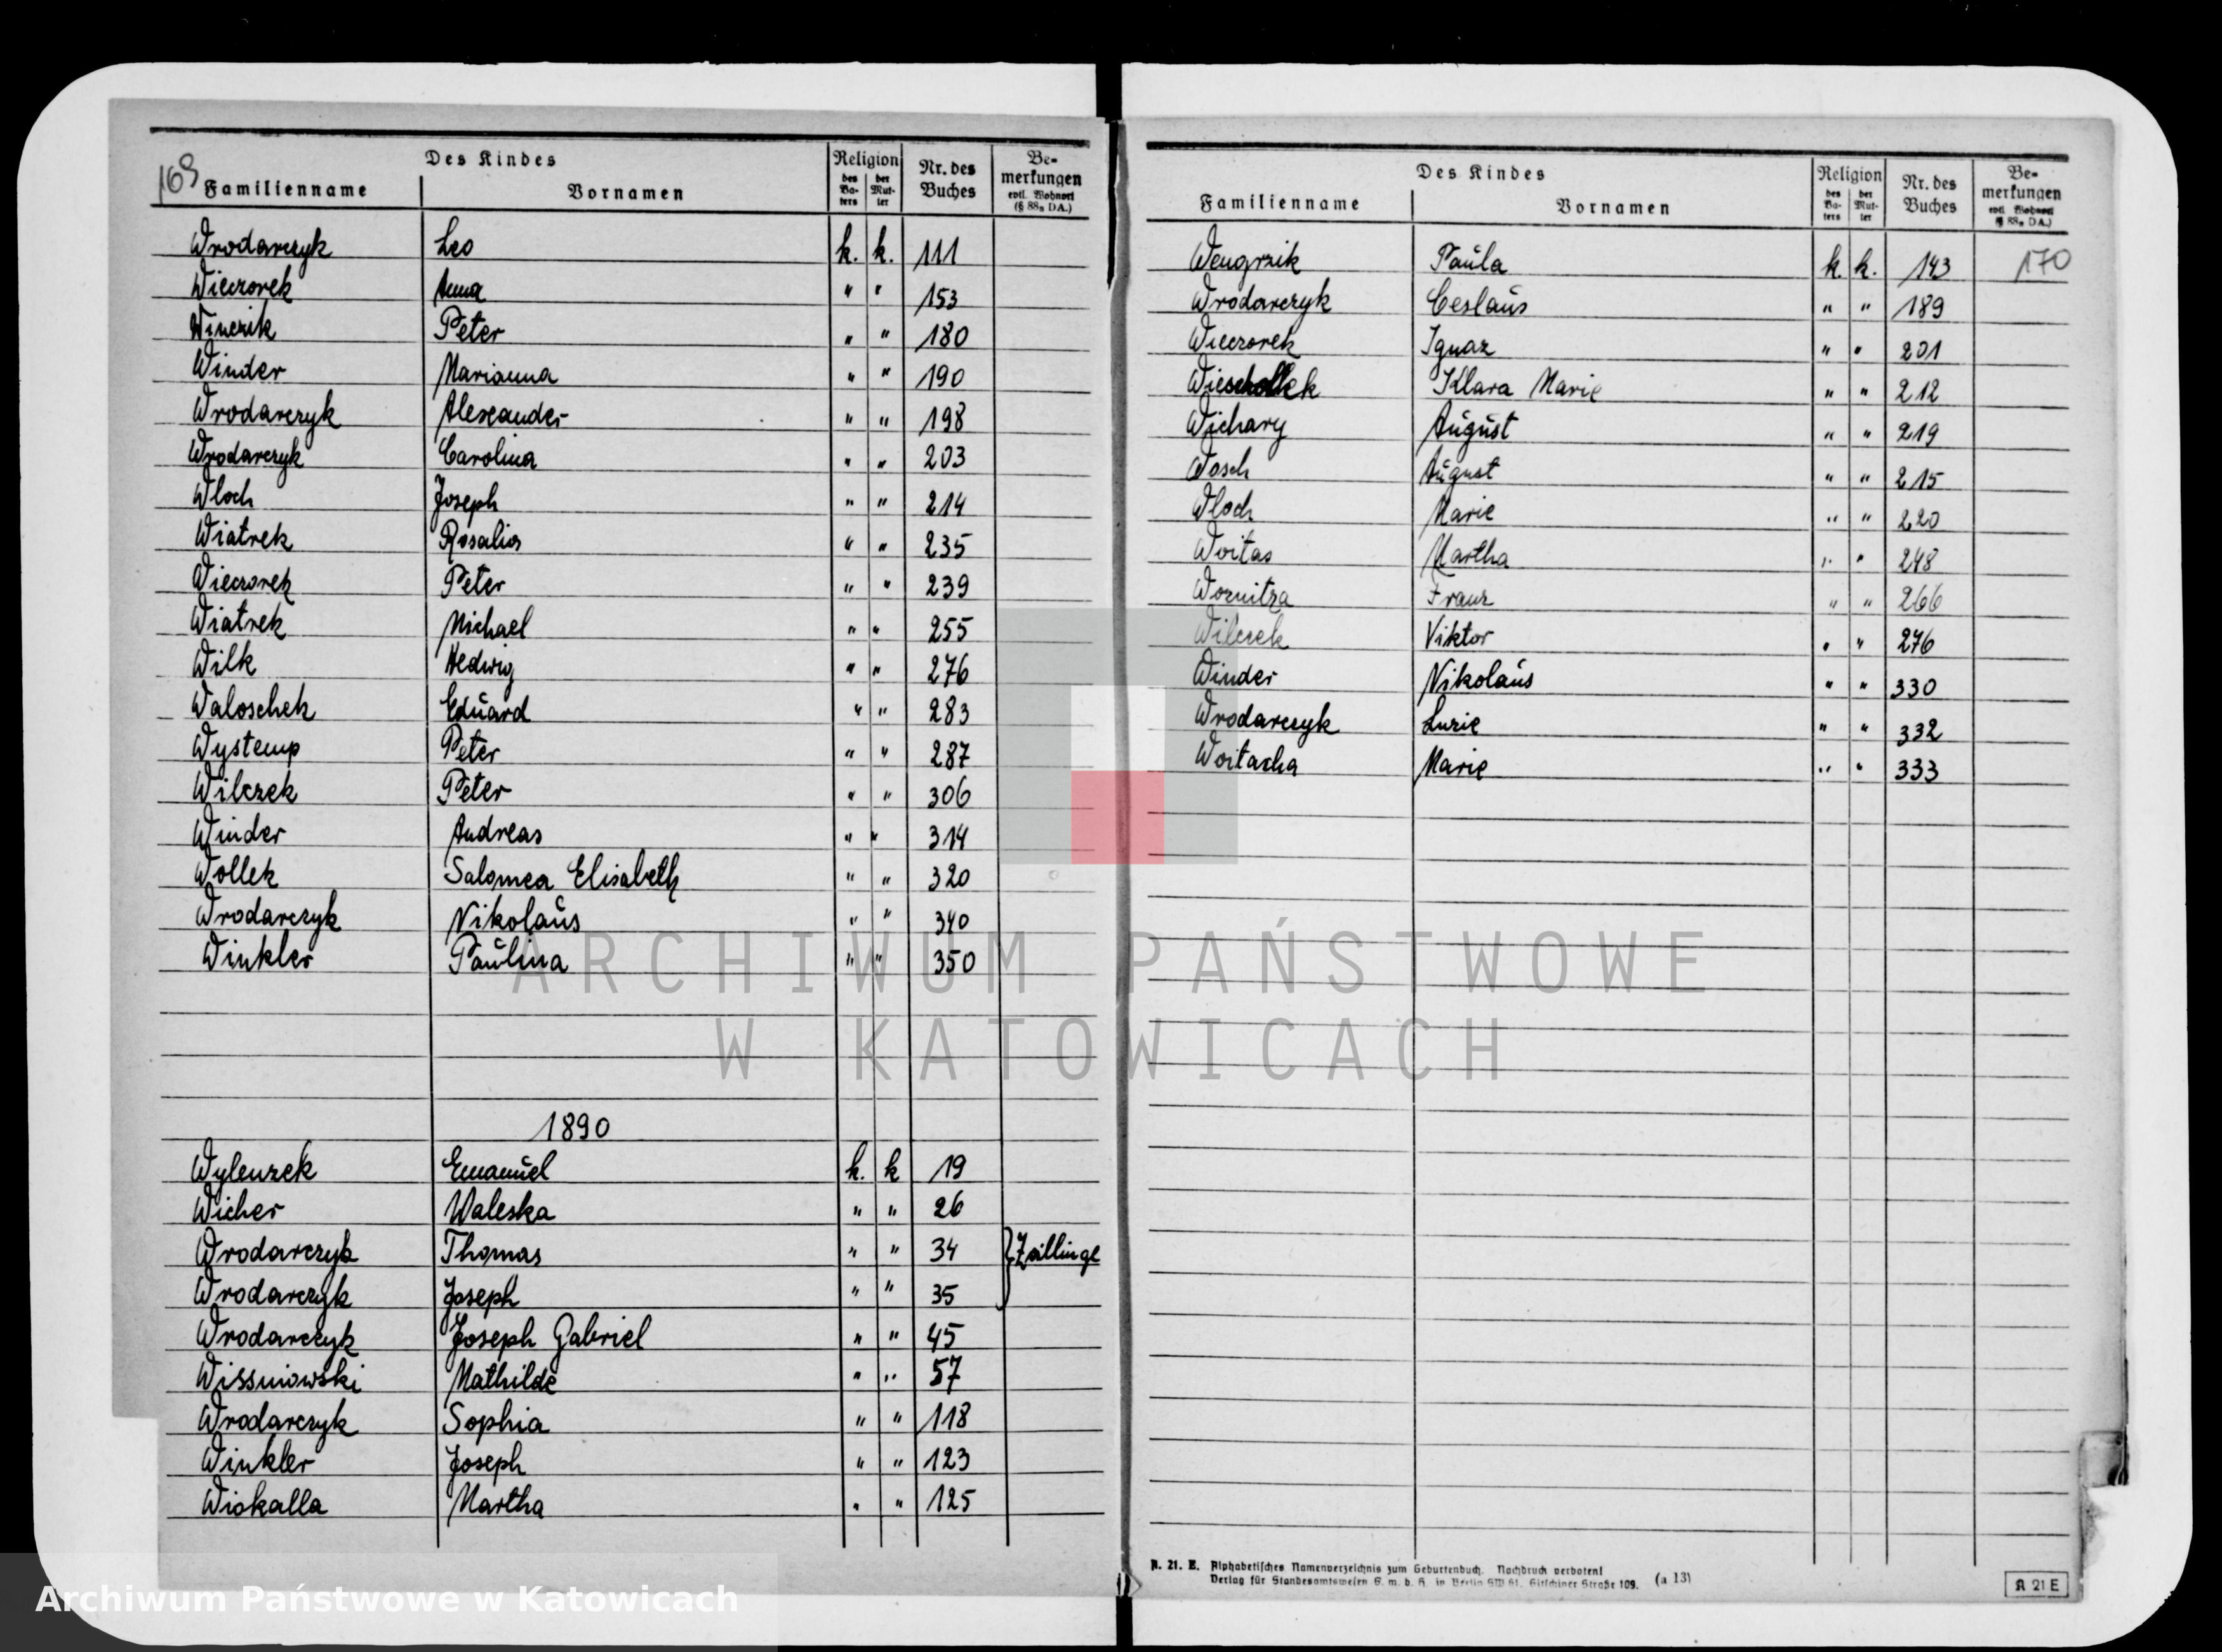 169
Des Kindes
Religion
Nr. des Buches
Be-
merkungen
evtl. Wohnort
(§ 88a DA.)
Familienname Vornamen des Va-ters der Mut-ter
Wrodarczyk Leo k. k. 111
Wieczorek Anna " " 153
Winczik Peter " " 180
Winder Marianna " " 190
Wrodarczyk Alexander " " 198
Wrodarczyk Carolina " " 203
Wloch Joseph " " 214
Wiatrek Rosalia " " 235
Wieczorek Peter " " 239
Wiatrek Michael " " 255
Wilk Hedwig " " 276
Waloschek Eduard " " 283
Wystemp Peter " " 287
Wilczek Peter " " 306
Winder Andreas " " 314
Wollek Salomea Elisabeth " " 320
Wrodarczyk Nikolaus " " 340
Winkler Paulina " " 350
1890
Wylenzek Emanuel k. k 19
Wicher Waleska " " 26
Wrodarczyk Thomas " " 34 } Zwillinge
Wrodarczyk Joseph " " 35
Wrodarczyk Joseph Gabriel " " 45
Wissniowski Mathilde " " 57
Wrodarczyk Sophia " " 118
Winkler Joseph " " 123
Wiokalla Martha " " 125
Des Kindes
Religion
Nr. des Buches
Be-
merkungen
evtl. Wohnort
(§ 88a DA.)
Familienname Vornamen des Va-ters der Mut-ter
Wengrzik Paula k. k. 143 170
Wrodarczyk Ceslaus " " 189
Wieczorek Ignaz " " 201
Wieschollek Klara Marie " " 212
Wichary August " " 219
Wosch August " " 215
Wloch Marie " " 220
Woitas Martha " " 248
Woznitza Franz " " 266
Wilczek Viktor " " 276
Winder Nikolaus " " 330
Wrodarczyk Luzie " " 332
Woitacha Marie " " 333
A. 21. E. Alphabetisches Namenverzeichnis zum Geburtenbuch. Nachdruck verboten!
Verlag für Standesamtswesen G. m. b. H. in Berlin SW 61, Gitschiner Straße 109. (a 13)
A 21 E
ARCHIWUM PAŃSTWOWE
W KATOWICACH
Archiwum Państwowe w Katowicach